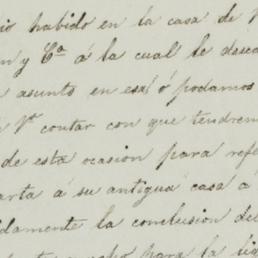 io habido en la casa de
n y Cª á la cual le desea
asunto en esa ó podamos
Vª contar con que tendrem
de esta ocasion para ref
arta á su antigua casa á
idamente la conclusion de
para la